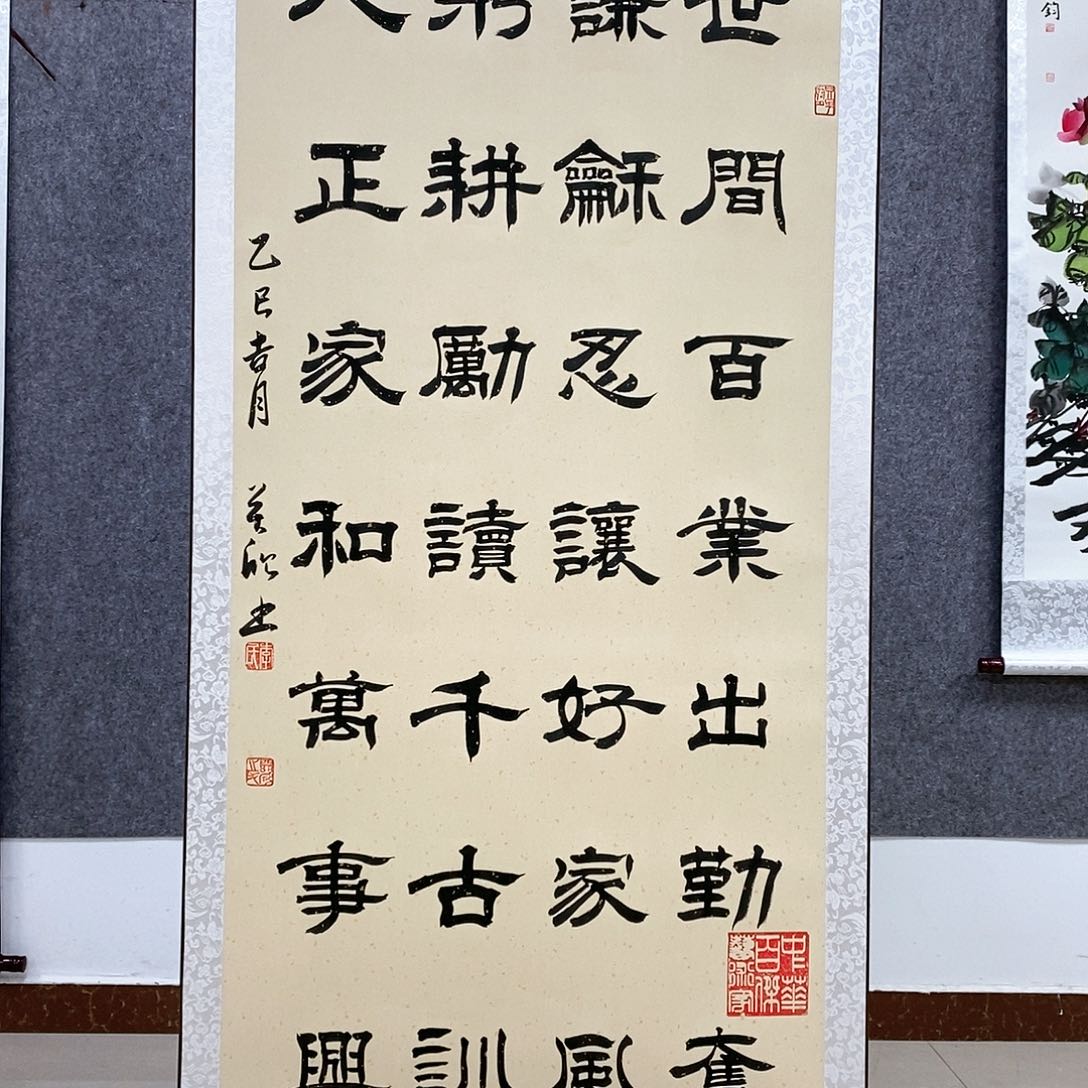 世間百業出勤奮
謙龢忍讓好家風
耕勵讀千古訓
人正家和萬事興
乙巳吉月
欣书
中華百傑藝術家
鈞